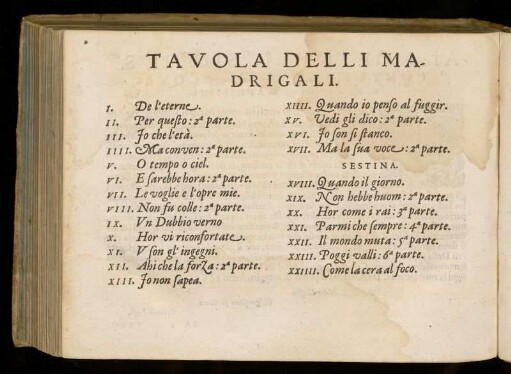 TAVOLA DELLI MA-
DRIGALI.
I. De l'eterne.
II. Per questo: 2ª parte.
III. Jo che l'età.
IIII. Ma conven: 2ª parte.
V. O tempo o ciel.
VI. E sarebbe hora: 2ª parte.
VII. Le voglie e l'opre mie.
VIII. Non fu colle: 2ª parte.
IX. Vn Dubbio verno
X. Hor vi riconfortate.
XI. V son gl'ingegni.
XII. Ahi che la forza: 2ª parte.
XIII. Jo non sapea.
XIIII. Quando io penso al fuggir.
XV. Vedi gli dico: 2ª parte.
XVI. Jo son sì stanco.
XVII. Ma la sua voce: 2ª parte.
SESTINA.
XVIII. Quando il giorno.
XIX. Non hebbe huom: 2ª parte.
XX. Hor come i rai: 3ª parte.
XXI. Parmi che sempre: 4ª parte.
XXII. Il mondo muta: 5ª parte.
XXIII. Poggi valli: 6ª parte.
XXIIII. Come la cera al foco.